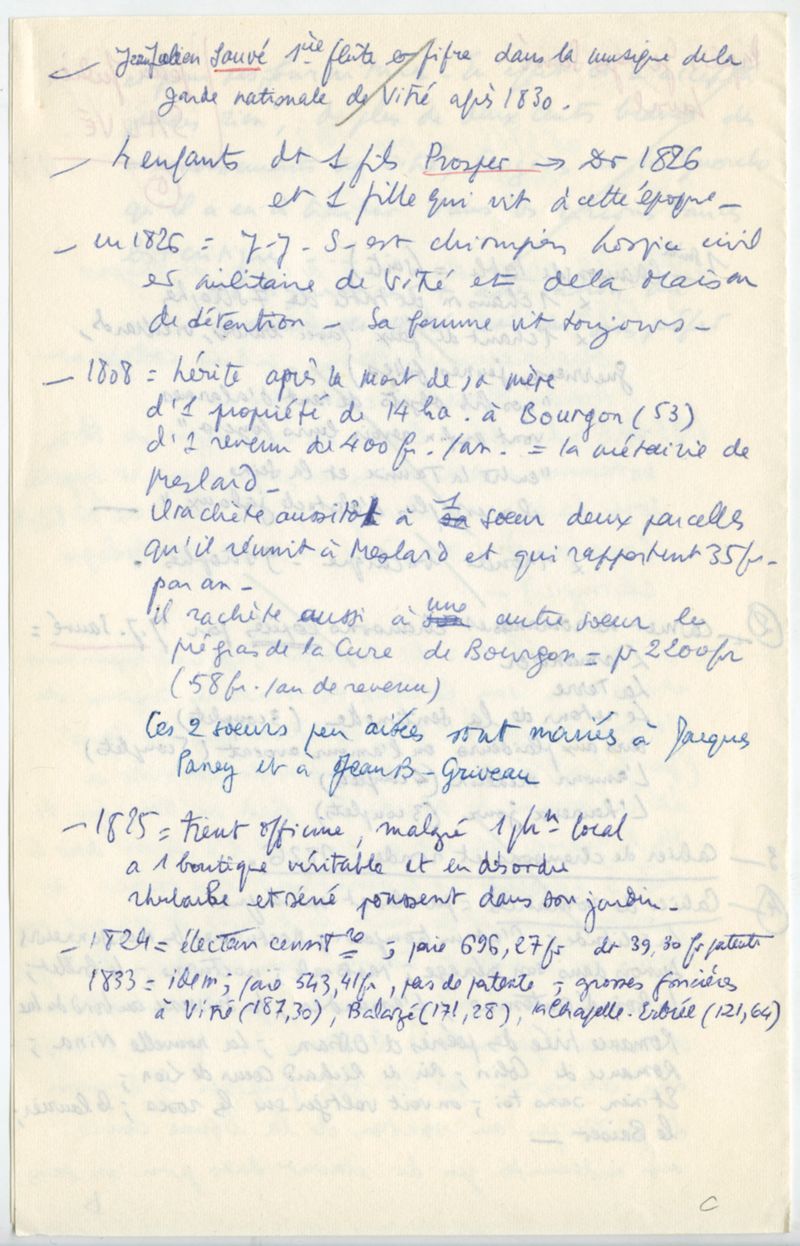 Jean Julien Sauvé 1ère flute et fifre dans la musique de la
garde nationale de Vitré après 1830.
— 4 enfants dt 1 fils Prosper → Dr 1826
et 1 fille qui vit à cette époque —
— en 1826 = J-J. S- est chirurgien hospice civil
et militaire de Vitré et de la Maison
de détention — Sa femme vit toujours —
— 1808 = hérite après la mort de sa mère
d'1 propriété de 14 ha. à Bourgon (53)
d'1 revenu de 400 fr. /an. = la métairie de
Meslard —
il rachète aussitôt à 1 soeur deux parcelles
qu'il réunit à Meslard et qui rapportent 35 fr.
par an —
il rachète aussi à une autre soeur le
de la Cure de Bourgon = pr 2200 fr
(58 fr. /an de revenu)
Ces 2 soeurs peu aisées sont mariées à Jacques
et à Jean B - Griveau
— 1825 = tient officine, malgré 1 phen local
a 1 boutique véritable et en désordre
rhubarbe et séné poussent dans son jardin —
1824 = électeur censitre ; paie 696,27 fr dt 39,30 fr patente
1833 = idem ; paie 543,41 fr, pas de patente ; grosses foncières
à Vitré (187,30), Balazé (171,28), la Chapelle-Erbrée (121,64)
C